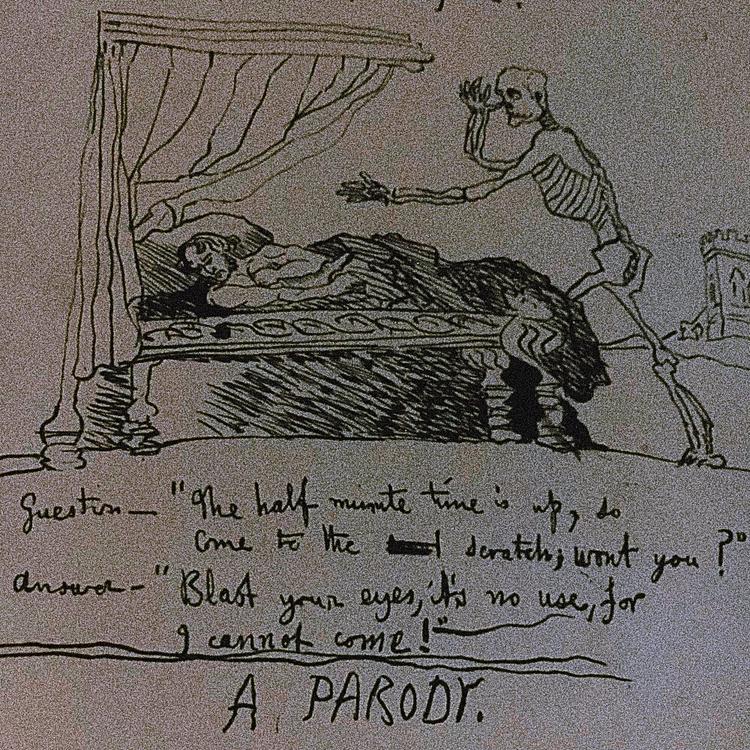 Question — "The half minute time is up, so
come to the scratch; wont you ?"
Answer — "Blast your eyes, it's no use, for
I cannot come!"
A PARODY.